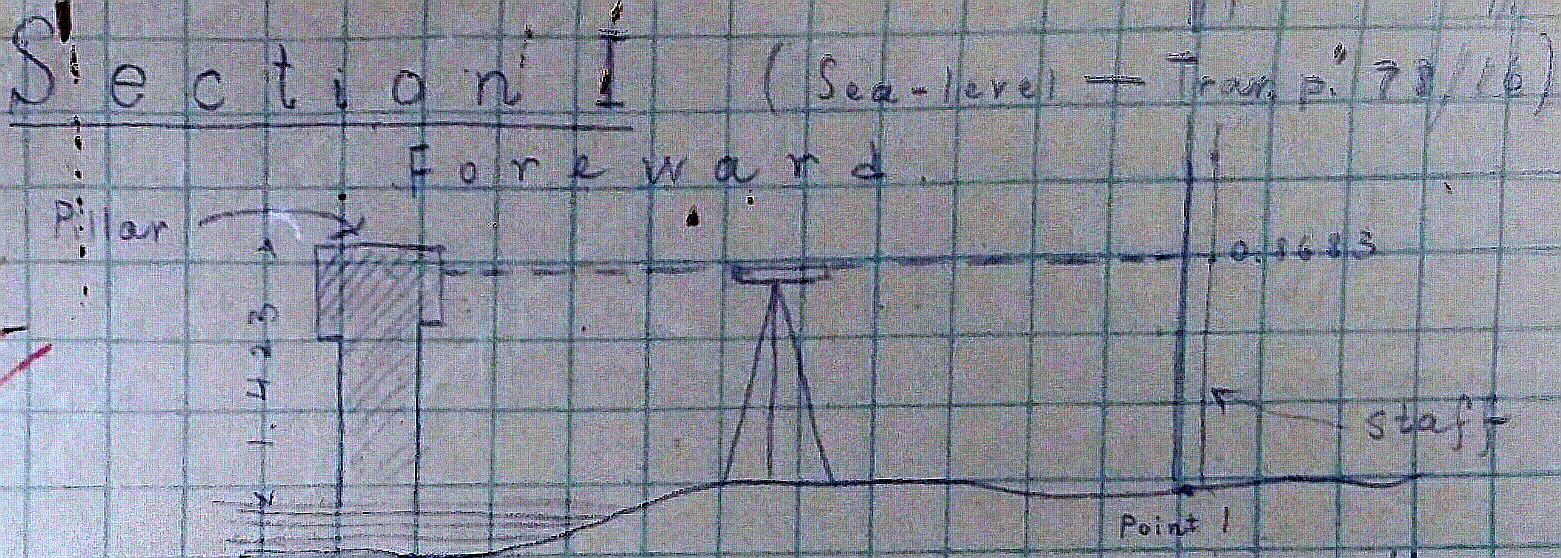 Section I (Sea-level — Tran. p. 78/16)
Foreward.
Pillar
0.8683
1.423
staff
Point 1